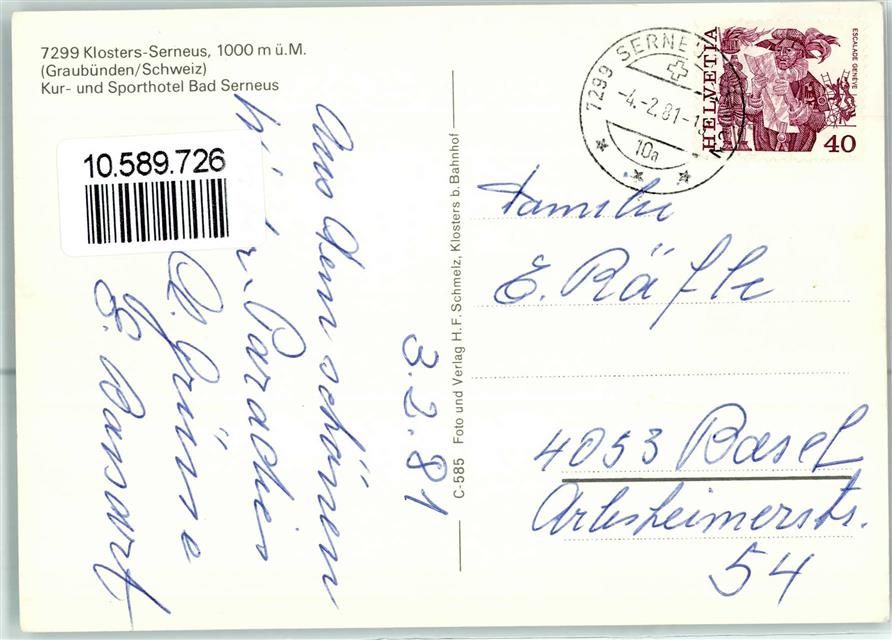 7299 Klosters-Serneus, 1000 m ü.M.
(Graubünden/Schweiz)
Kur- und Sporthotel Bad Serneus
10.589.726
3.2.81
Aus dem schönen
Paradies
Grüsse
E.
C-585 Foto und Verlag H.F. Schmelz, Klosters b. Bahnhof
7299 SERNEUS
-4.-2.81-1
10a
HELVETIA
ESCALADE GENÈVE
40
Familie
E. Räfle
4053 Basel
Arlesheimerstr.
54